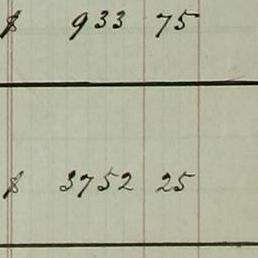 $ 933 75
$ 3752 25